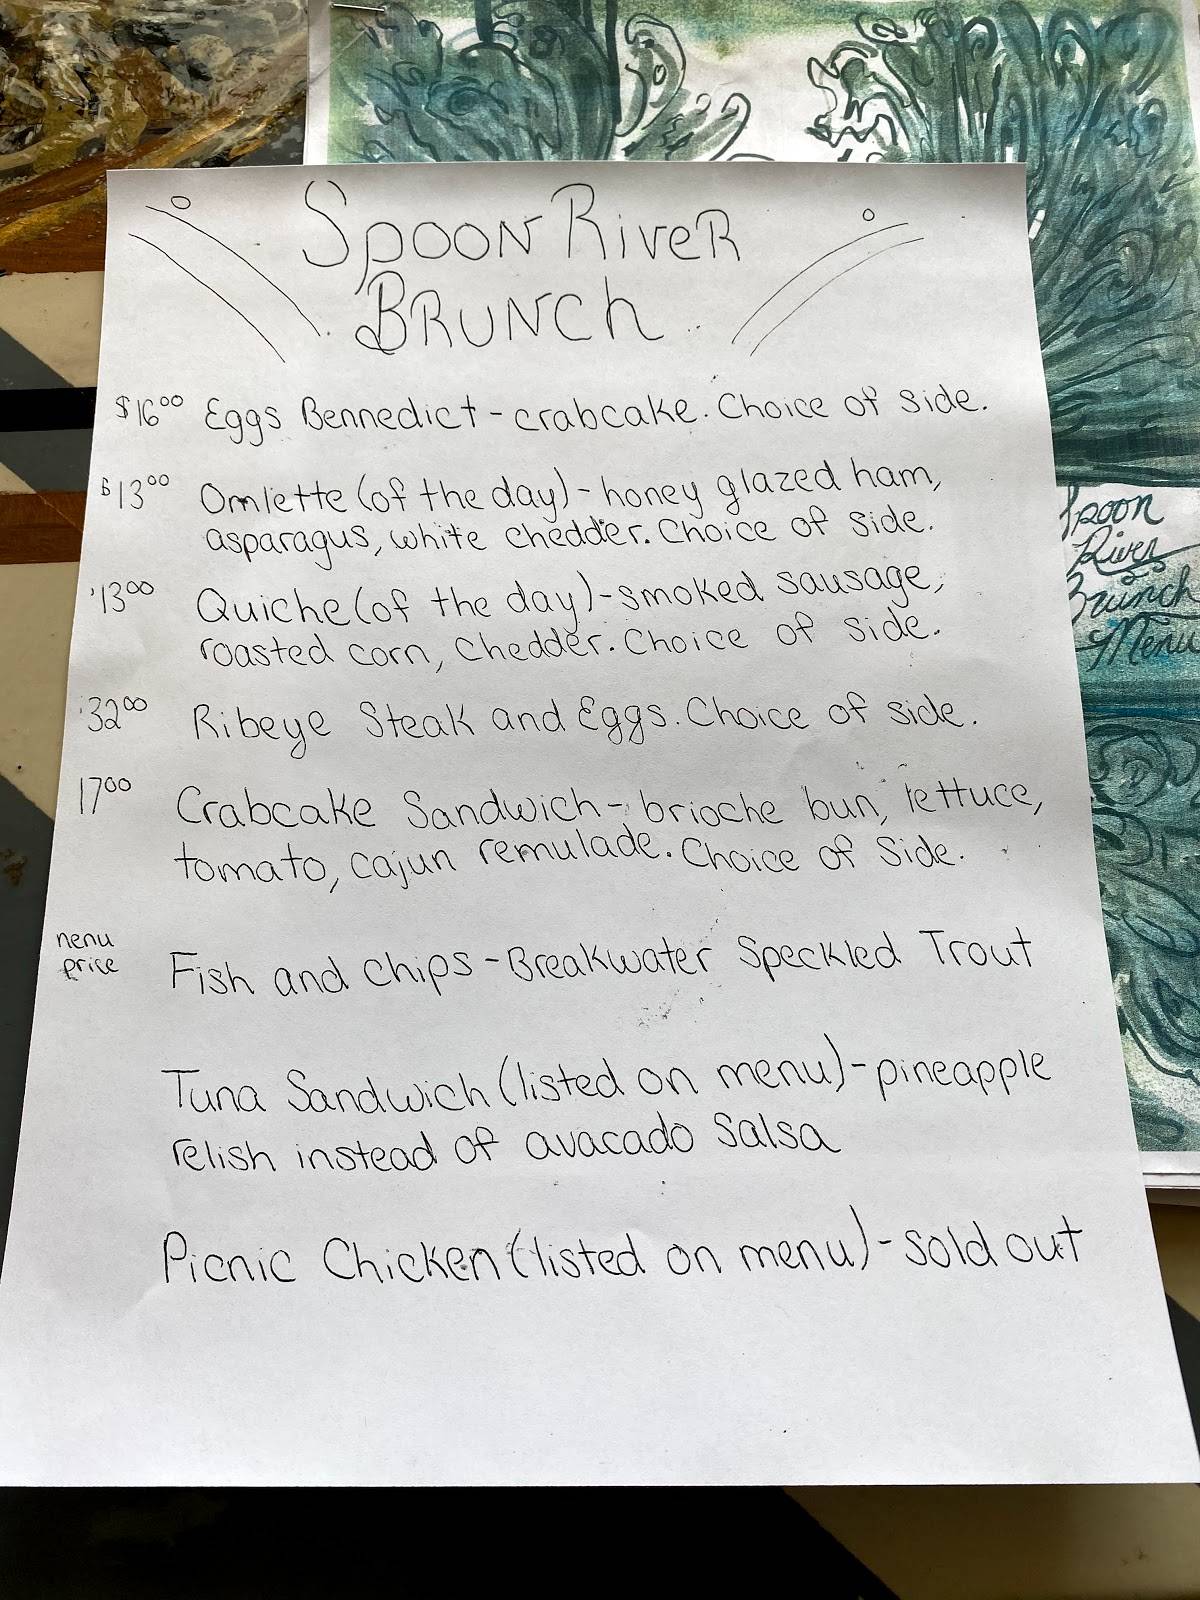 SPOON RIVER
BRUNCH
$16.00 Eggs Bennedict - crabcake. Choice of side.
$13.00 Omlette (of the day) - honey glazed ham,
asparagus, white chedder. Choice of side.
$13.00 Quiche (of the day) - smoked sausage,
roasted corn, chedder. Choice of side.
$32.00 Ribeye Steak and Eggs. Choice of side.
17.00 Crabcake Sandwich - brioche bun, lettuce,
tomato, cajun remulade. Choice of Side.
menu
price Fish and chips - Breakwater Speckled Trout
Tuna Sandwich (listed on menu) - pineapple
relish instead of avacado salsa
Picnic Chicken (listed on menu) - sold out
Spoon
River
Brunch
Menu